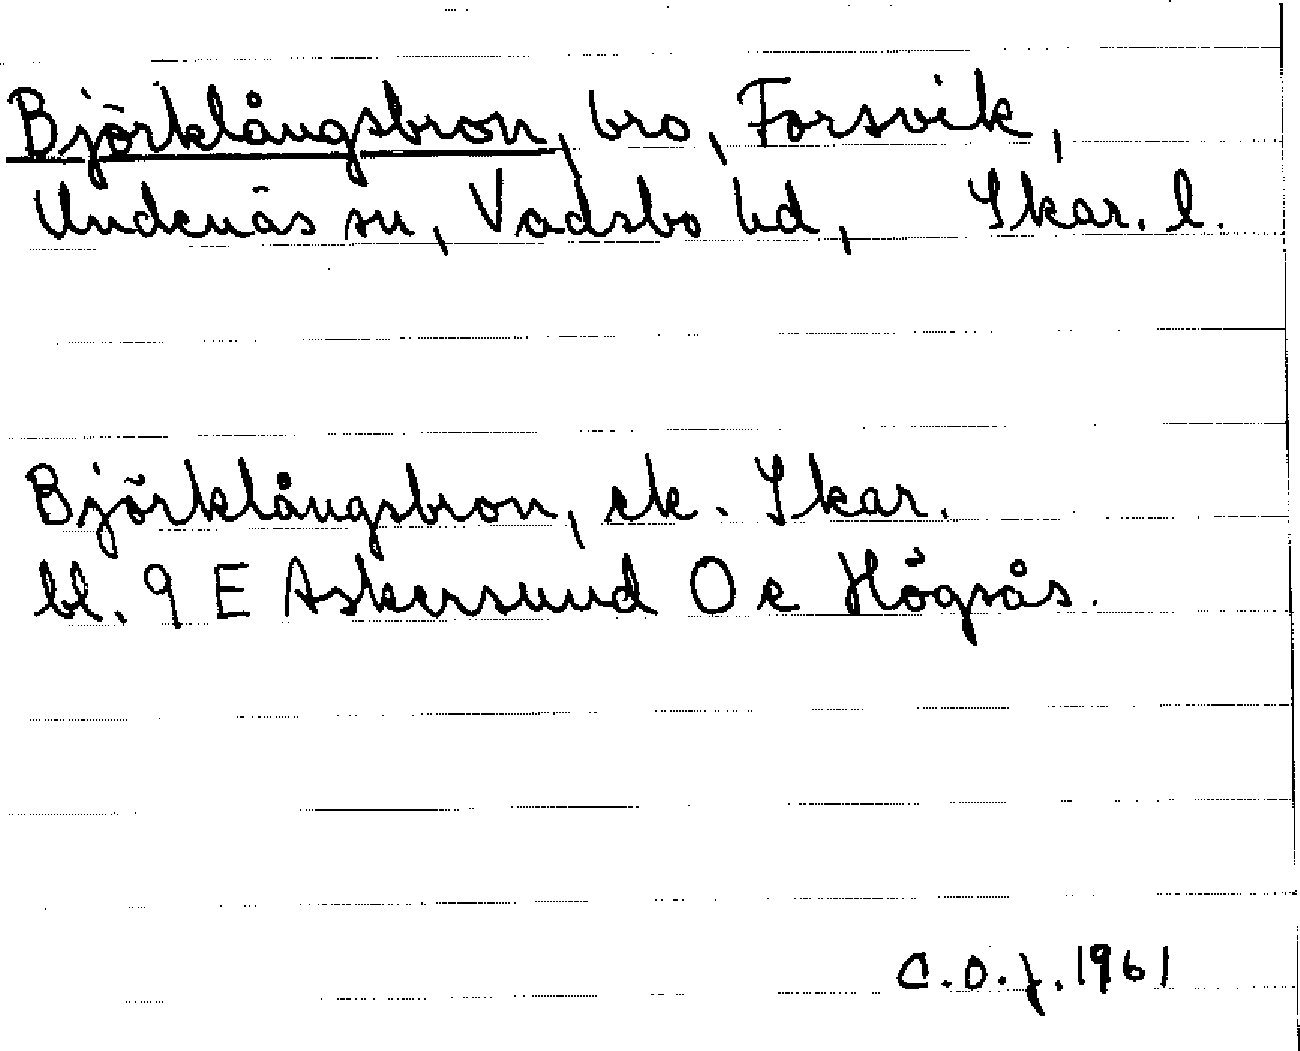 Björklångsbron, bro, Forsvik,
Undenäs sn, Vadsbo hd, Skar. l.
Björklångsbron, ek. Skar.
bl. 9 E Askersund O e Högsås.
C.O.J. 1961